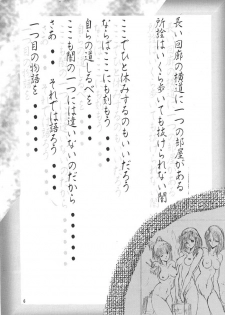 長い回廊の横道に一つの部屋がある
所詮はいくら歩いても抜けられない闇
ここでひと休みするのもいいだろう
ならばここにも刻もう
自らの道しるべを・・・・・
ここも闇の一つには違いないのだから
さあ・・ それでは語ろう・・・・
一つ目の物語を・・・・・
4